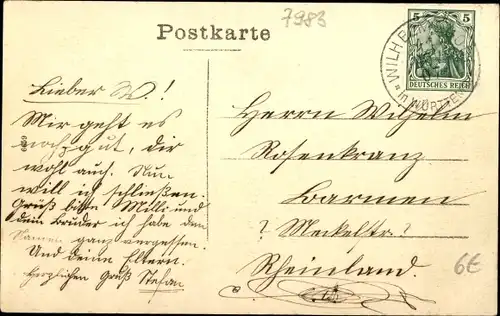 7983
Postkarte
5 5
DEUTSCHES REICH
WILH
in WÜRTTEM
Lieber W.!
Mir geht es
noch gut, dir
wohl auch. Nun
will ich schließen.
Gruß bitte Milli und
dein Bruder ich habe den
Namen ganz vergessen.
Und deine Eltern.
Herzlichen Gruß Stefan
Herrn Wilhelm
Rosenkranz
Barmen
? Meckelstr.?
Rheinland.
6€